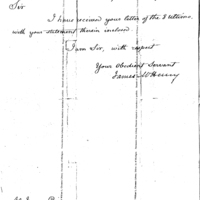 Sir
I have received your letter of the 3 ultimo,
with your statement therein inclosed
I am Sir, with respect
Your Obedient Servant
James McHenry